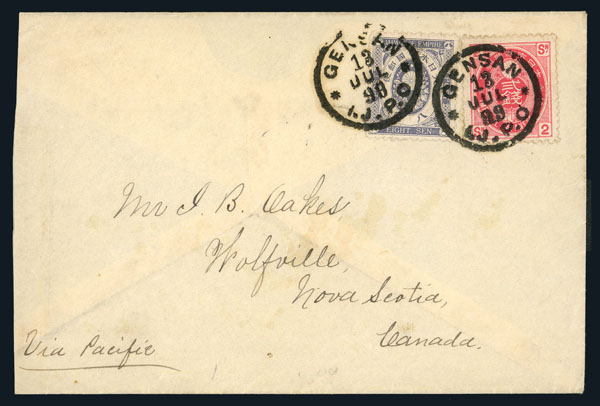 EMPIRE
EIGHT SEN
GENSAN
13
JUL
99
I.J.P.O
Sn
Sn 2
GENSAN
13
JUL
99
I.J.P.O
Mr I. B. Oakes,
Wolfville,
Nova Scotia,
Canada.
Via Pacific